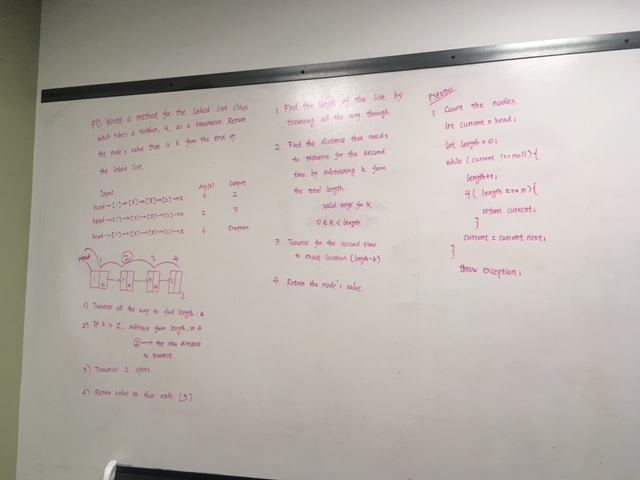 PD) Write a method for the Linked List class
which takes a number, k, as a parameter. Return
the node's value that is k from the end of
the linked list.
Input Arg(k) Output
head → [1] → [3] → [8] → [2] → x 0 2
head → [1] → [3] → [8] → [2] → x 2 3
head → [1] → [3] → [8] → [2] → x 6 Exception
Head 1 2 3 4
1) Traverse all the way to find length: 4
2) If k is 2, subtract from length, or 4
2 → the new distance
to traverse
3) Traverse 2 spots
4) Return value on that node [3]
1. Find the length of the list by
traversing all the way through.
2. Find the distance that needs
to traverse for the second
time by subtracting k from
the total length.
valid range for k
0 ≤ k < length
3. Traverse for the second time
to exact location (length-k)
4. Return the node's value.
PSEUDO
1. Count the nodes
let current = head;
let length = 0;
while (current !== null) {
length++;
if (length === n) {
return current;
}
current = current.next;
}
throw exception;